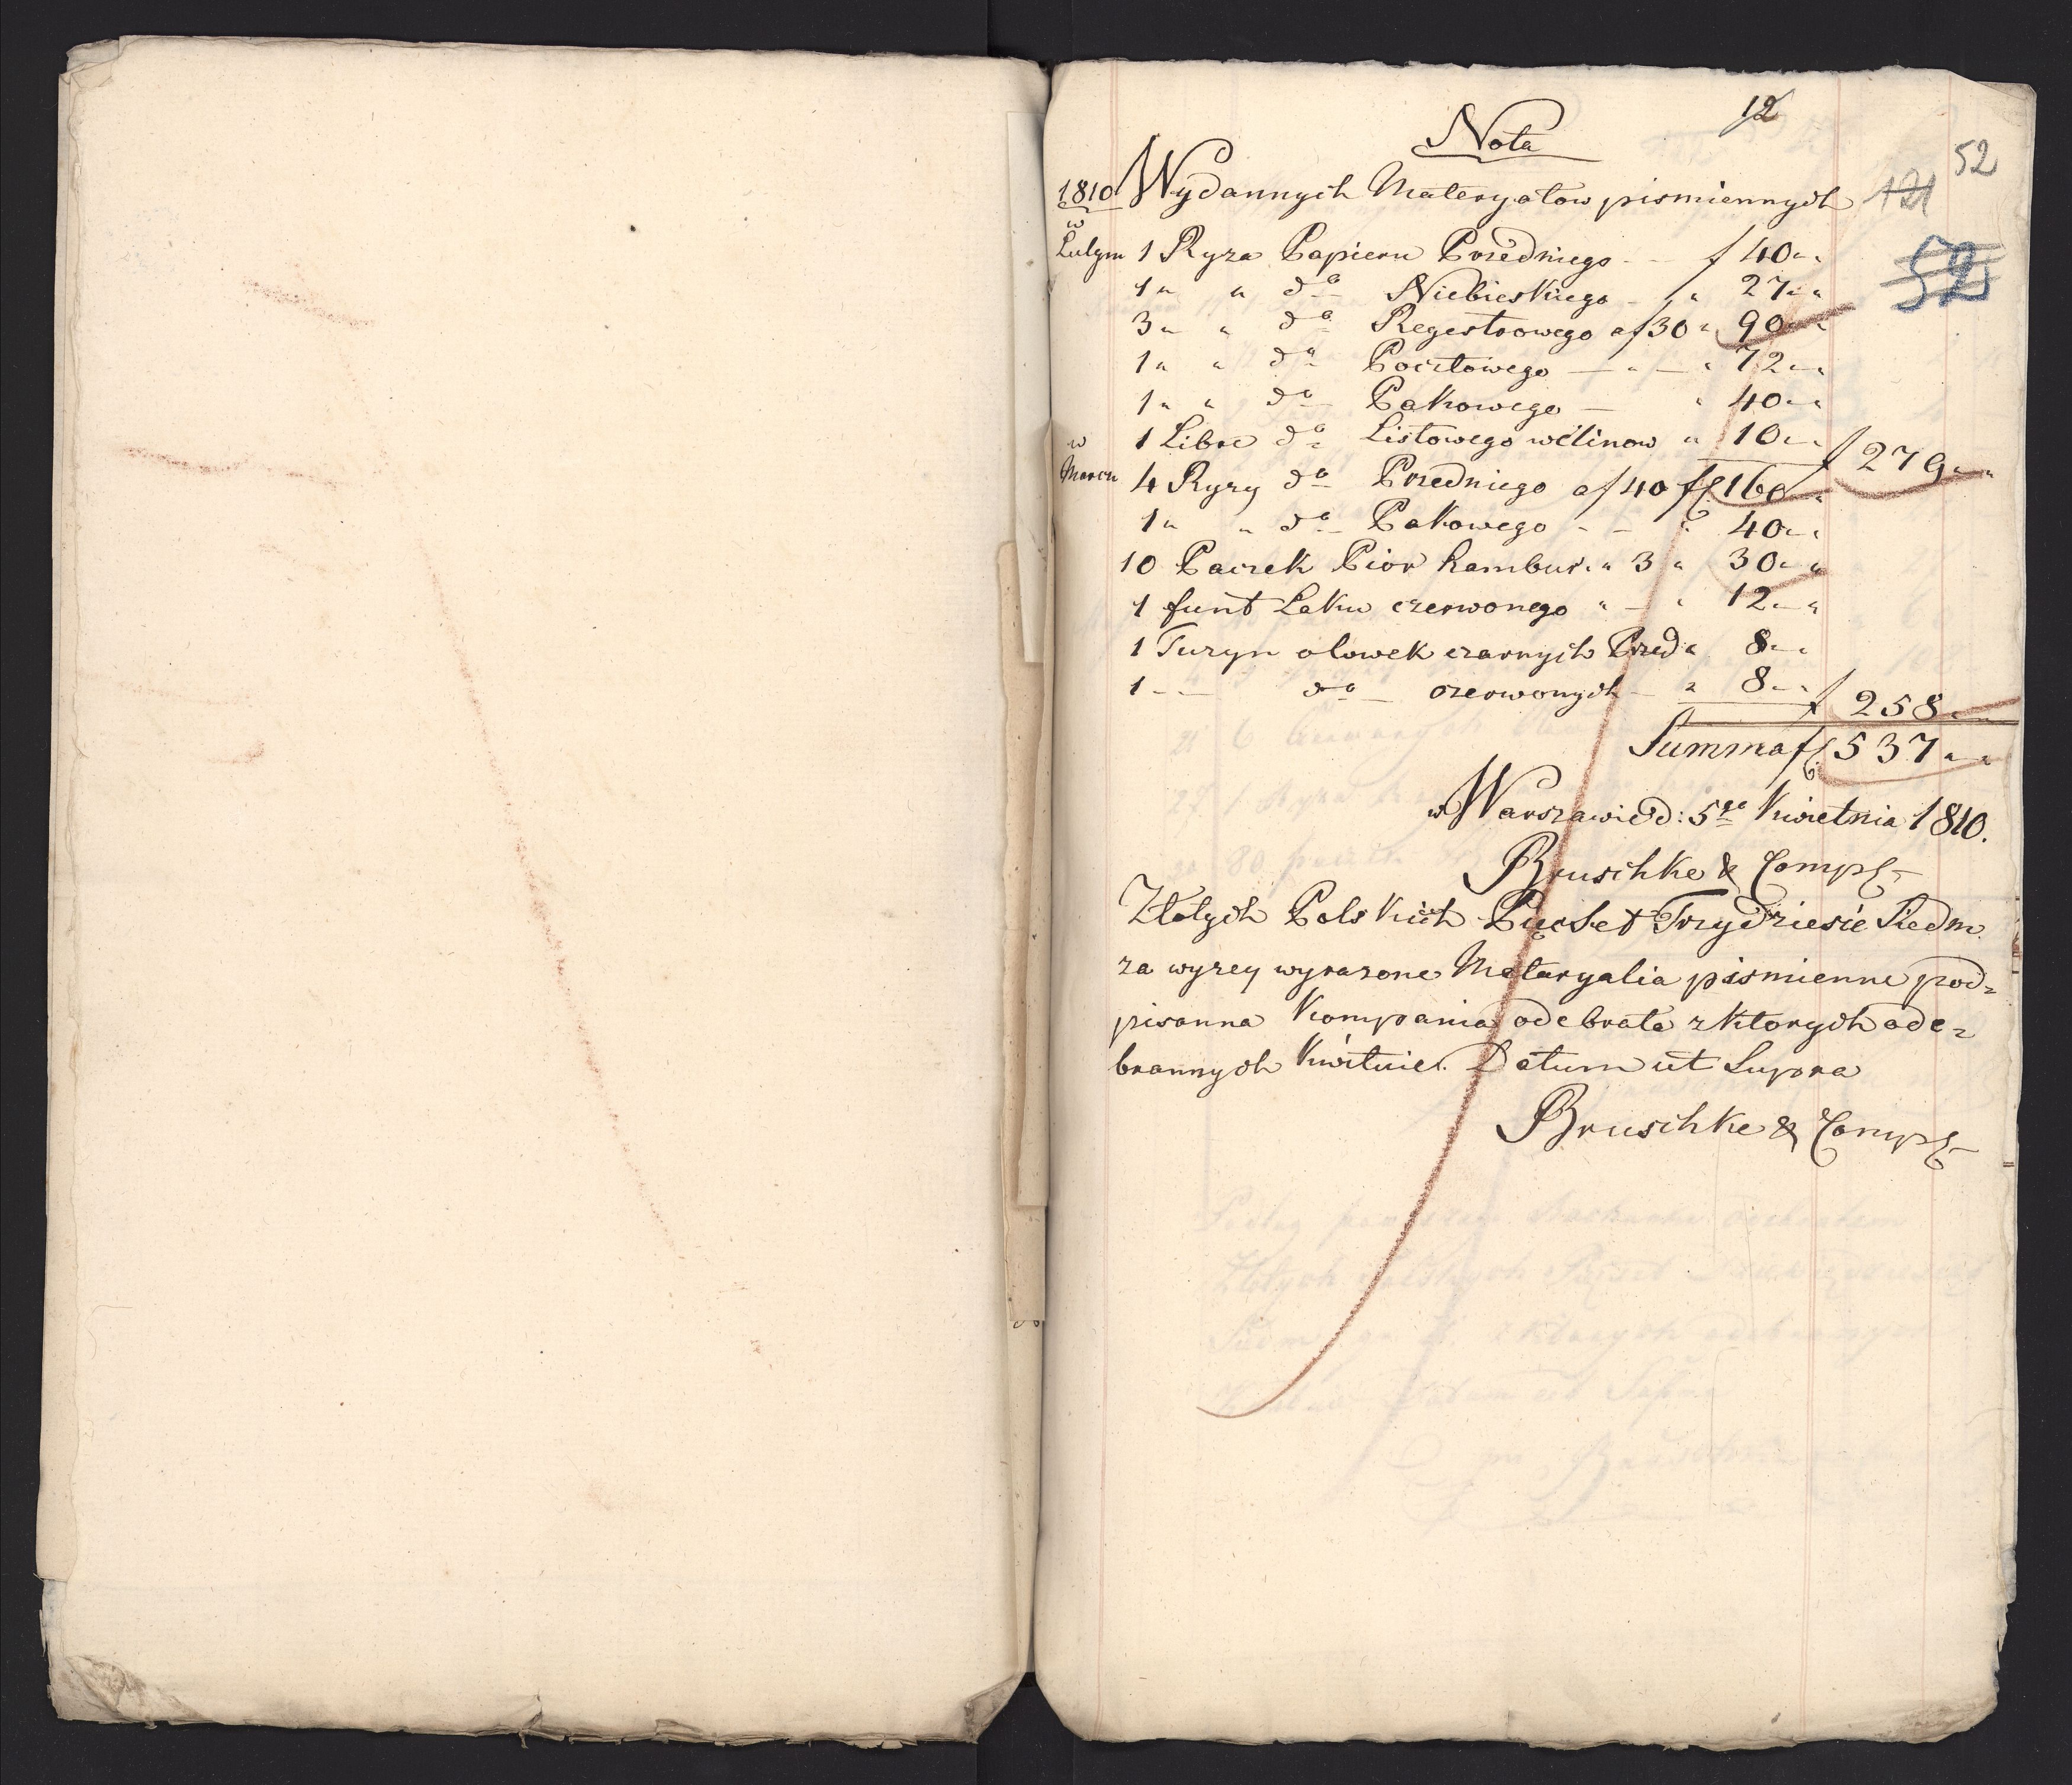 12
Nota
52
1810 Wydannych Materyałow pismiennych
121
w
Lutym 1 Ryza Papieru Przedniego - - f 40 " "
52
1 " " do Niebieskiego - " 27 " "
3 " " do Regestrowego a f 30 " 90 " "
1 " " do Pocztowego — " — " 72 " "
1 " " do Pakowego — " 40 " "
w 1 Libre do Listowego welinow " 10 " "
f 279 " "
Marcu 4 Ryzy do Przedniego a f 40 f 160 "
1 " " do Pakowego - - " 40 " "
10 Paczek Pior hambur. " 3 " 30 " "
1 funt Laku czerwonego " - " 12 " "
1 Tuzyn olowek czarnych Przed " 8 " "
1 - - do - czerwonych - " 8 " "
f 258 " "
Summa f 537 " "
w Warszawie d: 5go Kwietnia 1810.
Bruschke & Comp
Złotych Polskich Pięcset Trzydziesie Siedm
za wyzey wyrazone Materyalia pismienne pod=
pisanna Kompania odebrała z ktorych ode=
brannych Kwituie. Datum ut Supra
Bruschke & Comp